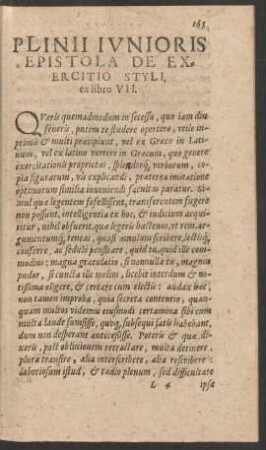 165
PLINII IVNIORIS
EPISTOLA DE EX-
ERCITIO STYLI,
ex libro VII.
QVæris quemadmodum in secessu, quo iam diu
frueris, putem te studere oportere, vtile in-
primis & multi præcipiunt, vel ex Græco in Lati-
num, vel ex latino vertere in Græcum, quo genere
exercitationis proprietas, splendorq; verborum, co-
pia figurarum, vis explicandi, præterea imitatione
optimorum similia inueniendi facultas paratur. Si-
mul quæ legentem fefellissent, transferentem fugere
non possunt, intelligentia ex hoc, & iudicium acqui-
ritur, nihil obfuerit, quæ legeris hactenus, vt rem, ar-
gumentumq; teneas, quasi æmulum scribere, lectisq;
conferre, ac sedulò pensitare, quid tu, quid ille com-
modius: magna gratulatio, si nonnulla tu, magnus
pudor, si cuncta ille melius, licebit interdum & no-
tissima eligere, & certare cum electis: audax hæc,
non tamen improba, quia secreta contentio, quan-
quam multos videmus eiusmodi certamina sibi cum
multa laude sumpsisse, quosq; subsequi satis habebant,
dum non desperant antecessisse. Poteris & quæ di-
xeris, post obliuionem retractare, multa detinere,
plura transire, alia interscribere, alia rescribere:
laboriosum istud, & tædio plenum, sed difficultate
L 4 ipsa